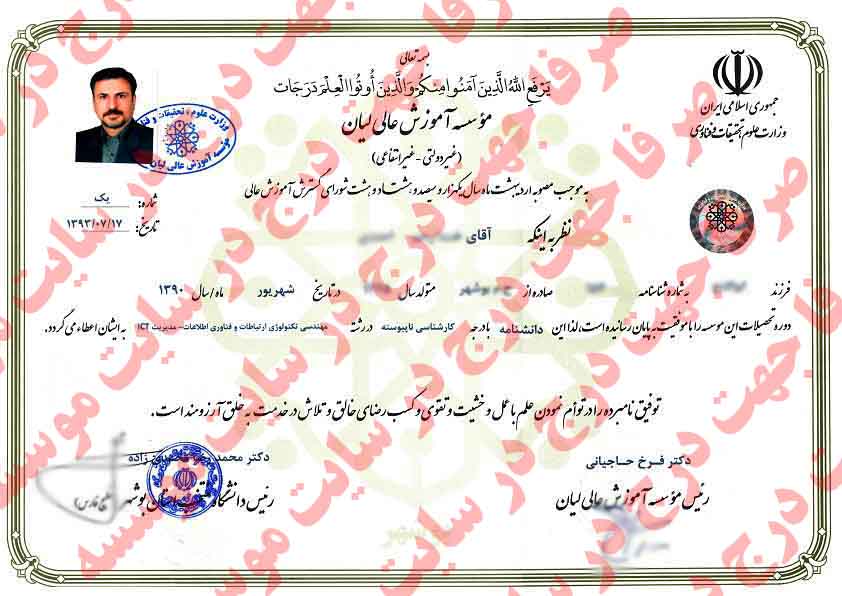 بسمه تعالی
یَرْفَعِ اللهُ الَّذینَ آمَنُوا مِنکُمْ وَالَّذینَ أُوتُوا الْعِلْمَ دَرَجَات
جمهوری اسلامی ایران
وزارت علوم تحقیقات و فناوری
مؤسسه آموزش عالی لیان
(غیردولتی - غیرانتفاعی)
به موجب مصوبه اردیبهشت ماه سال یکهزار و سیصد و هشتاد و هشت شورای گسترش آموزش عالی
شماره: یک
تاریخ: ۱۳۹۳/۰۷/۱۷
نظر به اینکه آقای
فرزند به شماره شناسنامه صادره از بوشهر متولد سال در تاریخ شهریور ماه/سال ۱۳۹۰
دوره تحصیلات این موسسه را با موفقیت به پایان رسانیده است، لذا این دانشنامه با درجه کارشناسی ناپیوسته در رشته مهندسی تکنولوژی ارتباطات و فناوری اطلاعات- مدیریت ICT به ایشان اعطاء می گردد.
توفیق نامبرده را در توأم نمودن علم با عمل و خشیت و تقوی و کسب رضای خالق و تلاش در خدمت به خلق آرزومند است.
دکتر فرخ حاجیانی
رئیس مؤسسه آموزش عالی لیان
دکتر محمد زاده
رئیس دانشگاه استان بوشهر (خلیج فارس)
وزارت علوم، تحقیقات و
مؤسسه آموزش عالی لیان
صرفا جهت درج در سایت موسسه
صرفا جهت درج در سایت موسسه
صرفا جهت درج در سایت موسسه